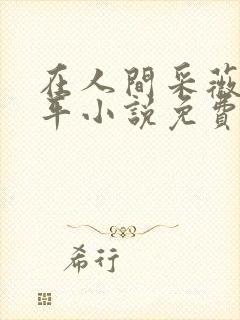 在人間采薇
年小說免費
希行